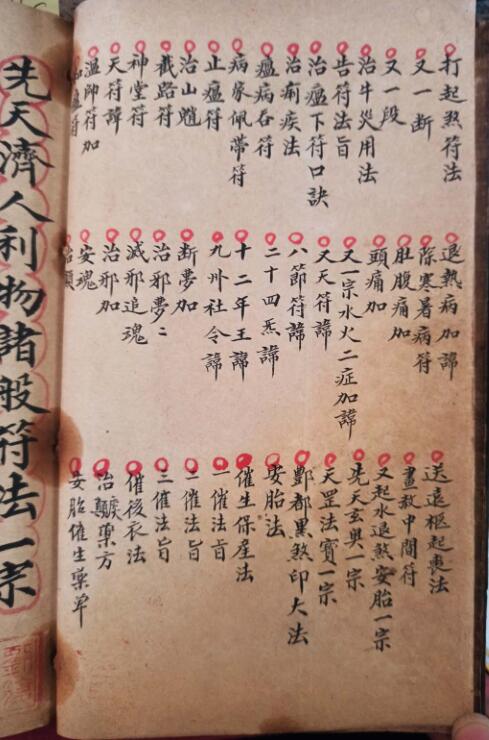 打起煞符法
又一断
又一段
治牛災用法
告符法旨
治瘟下符口訣
治痢疾法
瘟病吞符
病佩帶符
止瘟符
治山魈
截路符
神堂符
天符諱
溫帥符加
瘟符
退熱病加諱
除寒暑病符
肚腹痛加
頭痛加
又一宗水火二症加諱
又天符諱
八節符諱
二十四炁諱
十二年王諱
九卅社令諱
断夢加
治邪夢〻
滅邪追魂
治邪加
安魂
送退柩起喪法
畫敕中間符
又起水退煞安胎一宗
先天玄奥一宗
天罡法寶一宗
酆都黑煞印大法
安胎法
催生保産法
一催法旨
二催法旨
三催法旨
催後衣法
治藥方
安胎催生藥单
先天濟人利物諸般符法一宗